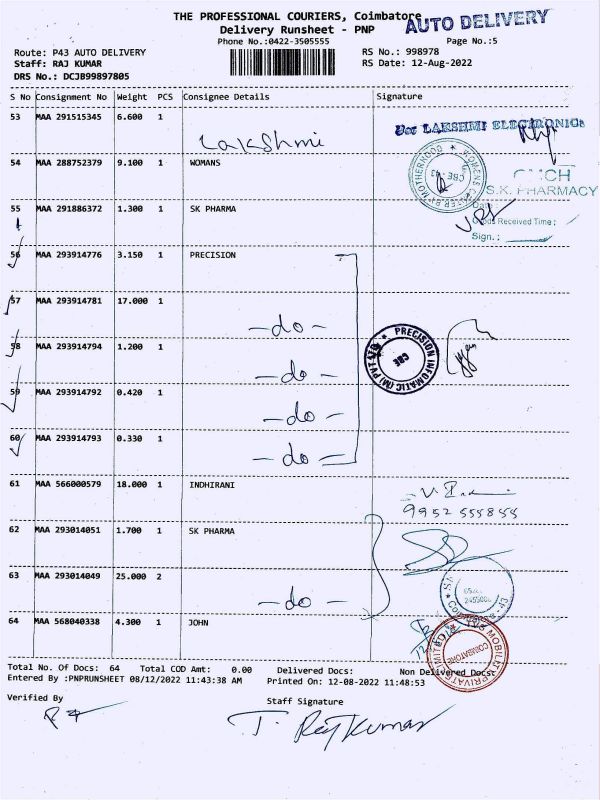 THE PROFESSIONAL COURIERS, Coimbatore
AUTO DELIVERY
Delivery Runsheet - PNP
Phone No.:0422-3505555
Page No.:5
Route: P43 AUTO DELIVERY
RS No.: 998978
Staff: RAJ KUMAR
RS Date: 12-Aug-2022
DRS No.: DCJB99897805
S No Consignment No Weight PCS Consignee Details Signature
53 MAA 291515345 6.600 1
Lakshmi
For LAKSHMI ELECTRONICS
54 MAA 288752379 9.100 1 WOMANS
WOMENS CENTER BY MOTHERHOOD
CBE - 43
S.K. PHARMACY
55 MAA 291886372 1.300 1 SK PHARMA
Date:
Goods Received Time:
Sign.:
56 MAA 293914776 3.150 1 PRECISION
57 MAA 293914781 17.000 1
-do-
58 MAA 293914794 1.200 1
-do-
PRECISION INFOMATIC (M) PVT LTD
CBE
59 MAA 293914792 0.420 1
-do-
60 MAA 293914793 0.330 1
-do-
61 MAA 566000579 18.000 1 INDHIRANI
9952555855
62 MAA 293014051 1.700 1 SK PHARMA
63 MAA 293014049 25.000 2
-do-
64 MAA 568040338 4.300 1 JOHN
TVS MOBILITY PRIVATE LIMITED
COIMBATORE
Total No. Of Docs: 64 Total COD Amt: 0.00 Delivered Docs: Non Delivered Docs:
Entered By :PNPRUNSHEET 08/12/2022 11:43:38 AM Printed On: 12-08-2022 11:48:53
Verified By
Staff Signature
T. Rajkumar